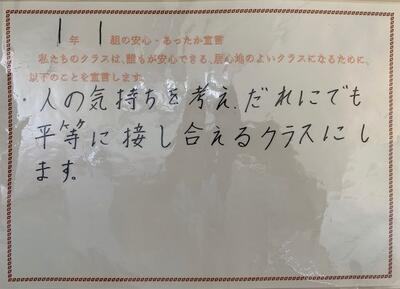 1年1組の安心・あったか宣言
私たちのクラスは、誰もが安心できる、居心地のよいクラスになるために、
以下のことを宣言します。
・人の気持ちを考え、だれにでも
平等に接し合えるクラスにし
ます。